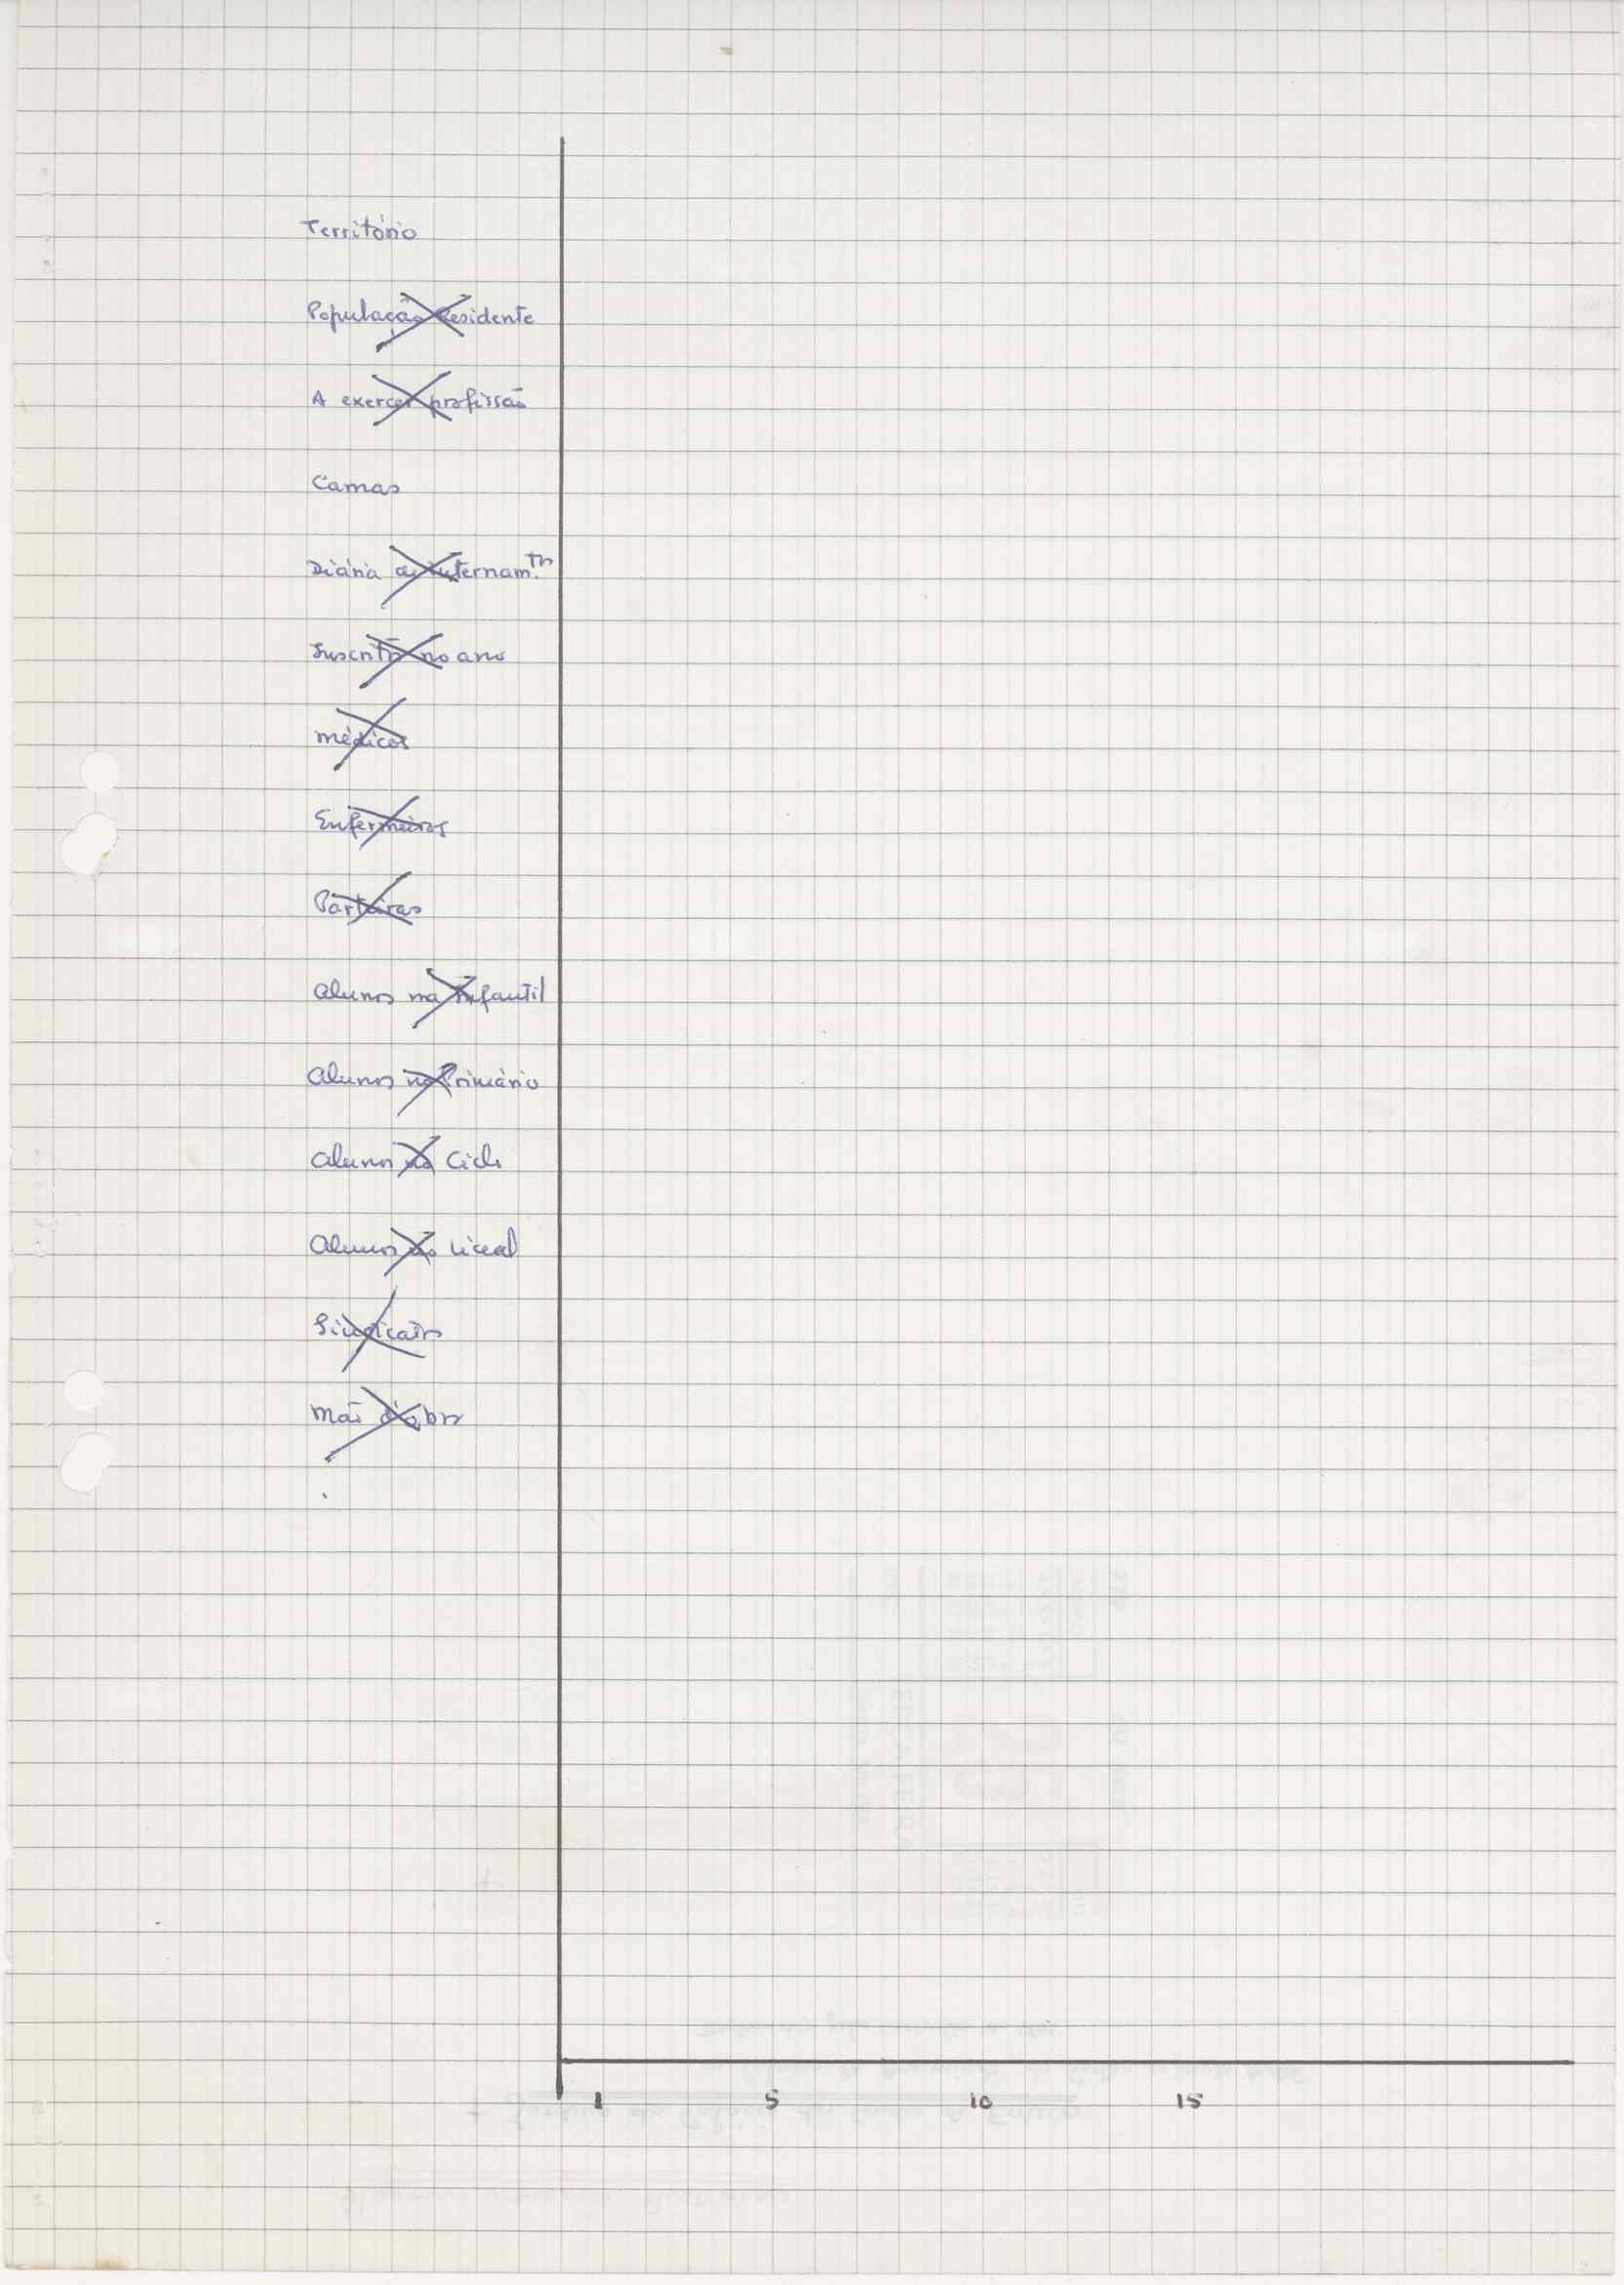 Território
População Residente
A exercer profissão
Camas
Diária de internam.to
Inscritos no ano
Médicos
Enfermeiros
Parteiras
Alunos na Infantil
Alunos no Primário
Alunos no Ciclo
Alunos no Liceal
Sindicatos
Mão d'obra
1 5 10 15